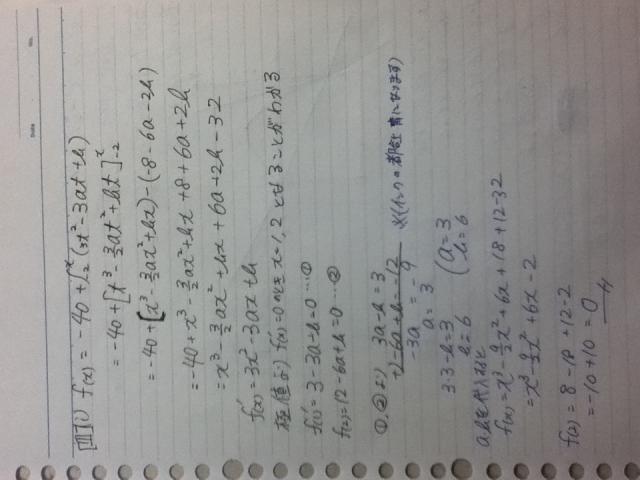 No.
Date
[III](i) f(x) = -40 + ∫₋₂ˣ (3t² - 3at + b)
= -40 + [t³ - 3/2 at² + bt]ˣ₋₂
= -40 + (x³ - 3/2 ax² + bx) - (-8 - 6a - 2b)
= -40 + x³ - 3/2 ax² + bx + 8 + 6a + 2b
= x³ - 3/2 ax² + bx + 6a + 2b - 32
f'(x) = 3x² - 3ax + b
極値より f'(x)=0のときx=1,2となることがわかる
f'(1) = 3 - 3a + b = 0 … ①
f'(2) = 12 - 6a + b = 0 … ②
①,②より 3a - b = 3
+) -6a + b = -12
-3a = -9
a = 3
3·3 - b = 3
b = 6
( a = 3
b = 6
a,bを代入すると
f(x) = x³ - 9/2 x² + 6x + 18 + 12 - 32
= x³ - 9/2 x² + 6x - 2
f(2) = 8 - 18 + 12 - 2
= -10 + 10 = 0